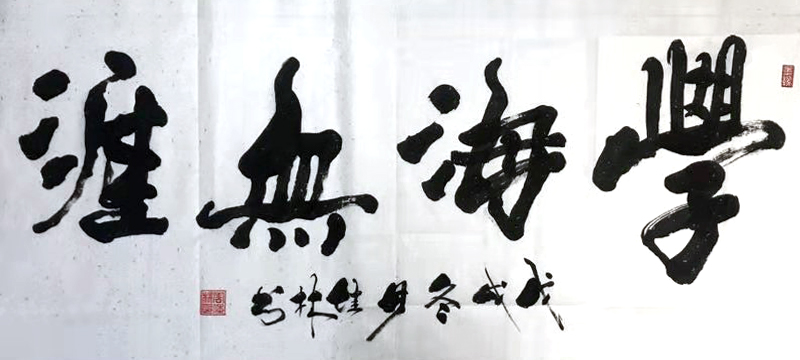 學海無涯
戊戌冬月維林书